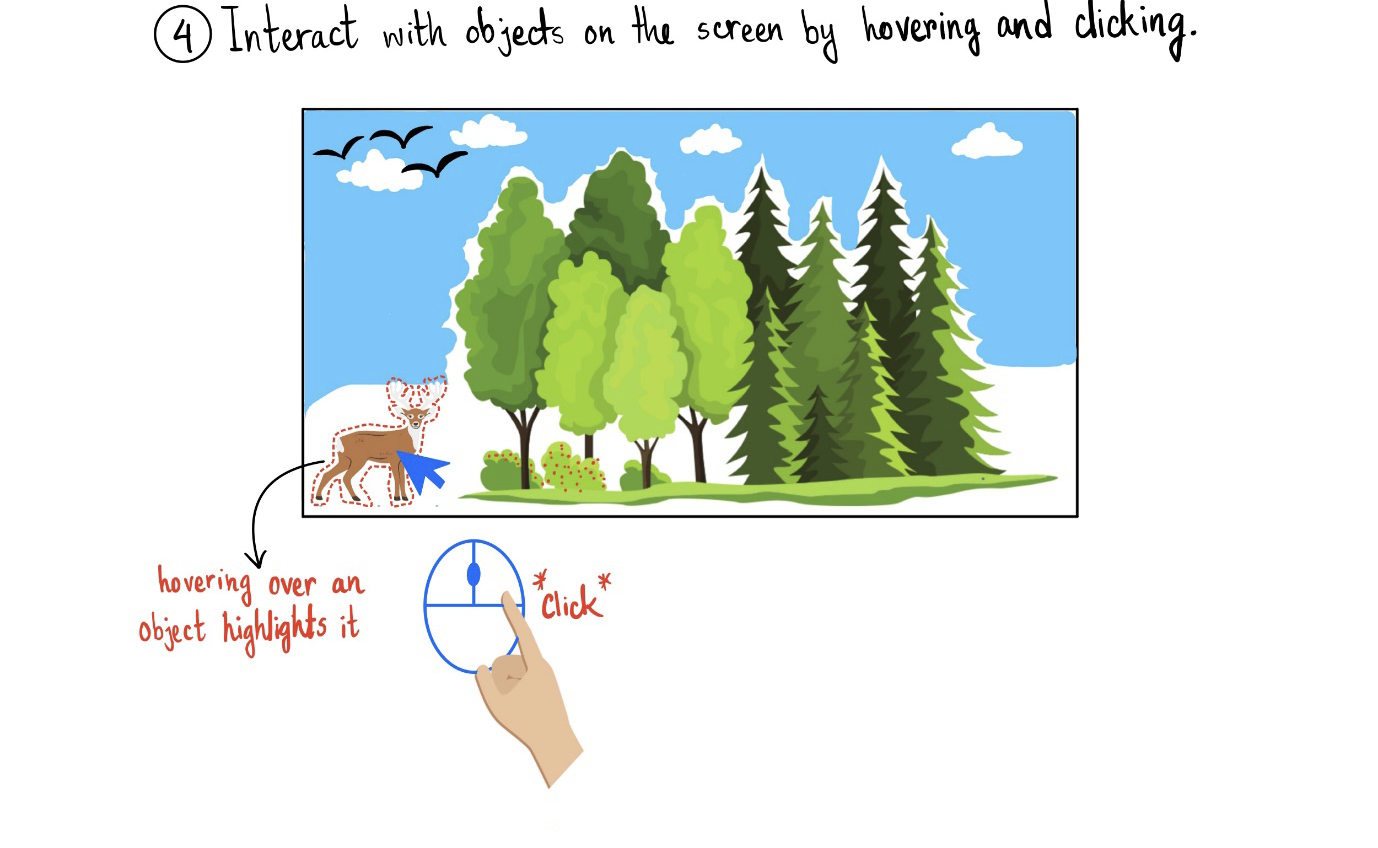 4 Interact with objects on the screen by hovering and clicking.
hovering over an
object highlights it
*click*